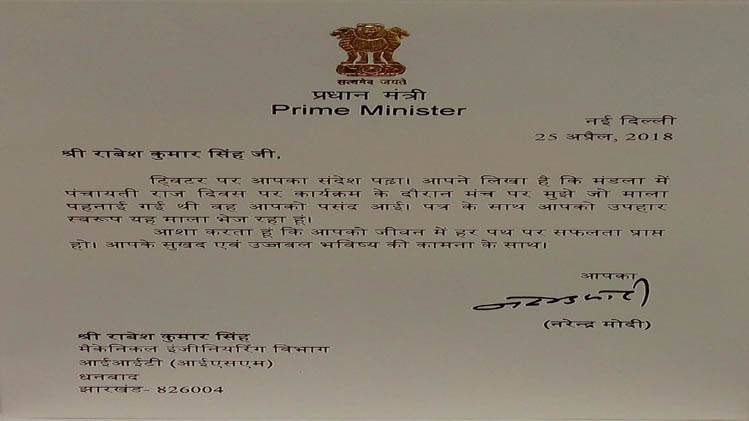 सत्यमेव जयते
प्रधान मंत्री
Prime Minister
नई दिल्ली
25 अप्रैल, 2018
श्री राबेश कुमार सिंह जी,
ट्विटर पर आपका संदेश पढ़ा। आपने लिखा है कि मंडला में
पंचायती राज दिवस पर कार्यक्रम के दौरान मंच पर मुझे जो माला
पहनाई गई थी वह आपको पसंद आई। पत्र के साथ आपको उपहार
स्वरूप यह माला भेज रहा हूं।
आशा करता हूं कि आपको जीवन में हर पथ पर सफलता प्राप्त
हो। आपके सुखद एवं उज्जवल भविष्य की कामना के साथ।
आपका
नरेन्द्र मोदी
(नरेन्द्र मोदी)
श्री राबेश कुमार सिंह
मैकेनिकल इंजीनियरिंग विभाग
आईआईटी (आईएसएम)
धनबाद
झारखंड- 826004